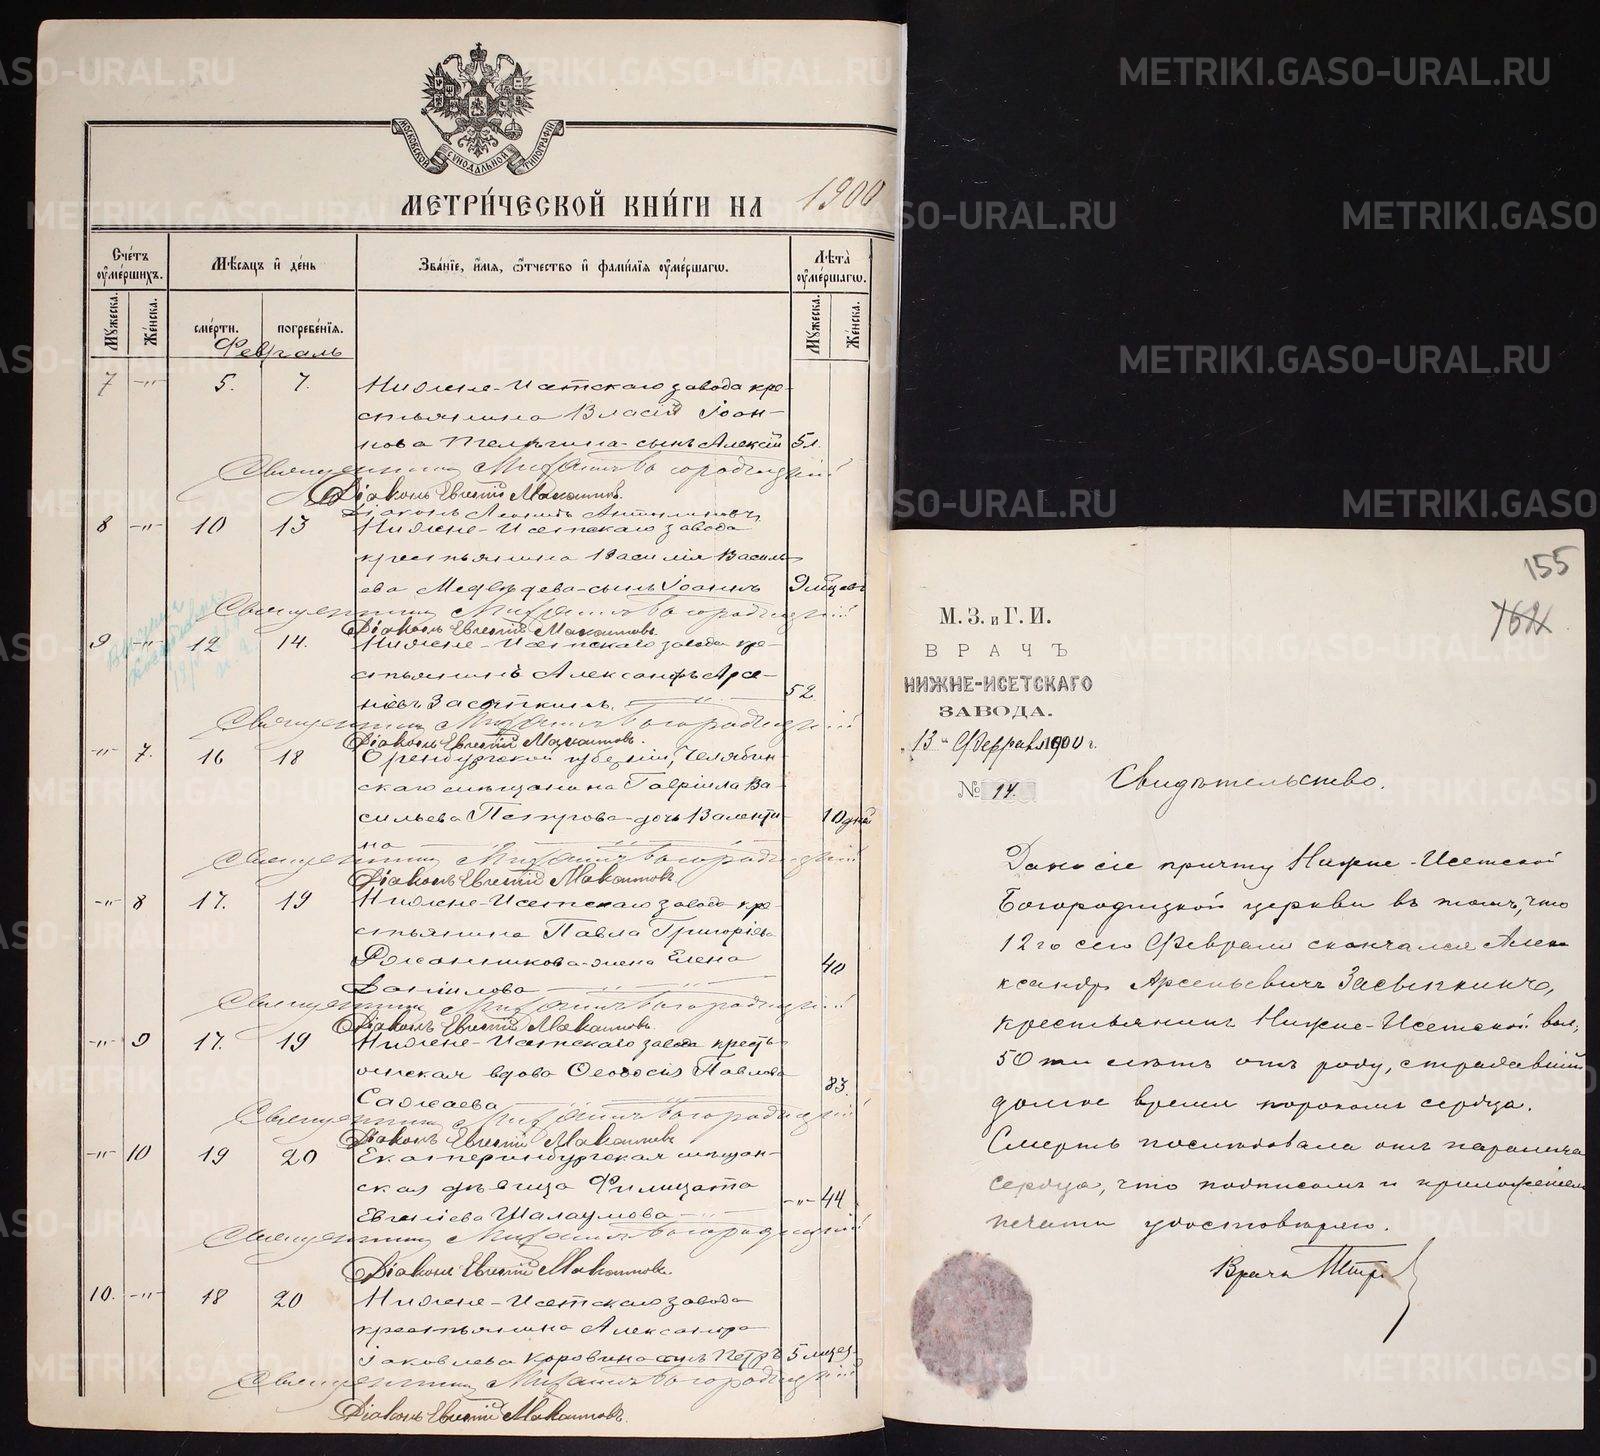 МОСКОВСКОЙ СѴНОДАЛЬНОЙ ТИПОГРАФІИ
МЕТРИ́ЧЕСКОЙ КНИ́ГИ НА 1900
Счéтъ ᲂу҆мéршихъ.
Мѣ́сяцъ и҆ дéнь
Звáнїе, и҆́мя, ѻ҆́тчество и҆ фамѝлїя ᲂу҆мéршагѡ.
Лѣ́та ᲂу҆мéршагѡ.
Мꙋ́жеска.
Жéнска.
смéрти.
погребéнїя.
Мꙋ́жеска.
Жéнска.
Февраль
7 -"- 5. 7. Нижне-Исетскаго завода кре-
стьянина Власія Іоан-
нова Телѣгина-сынъ Алексій 5 л.
Священникъ Михаилъ Богородицкій
Діаконъ Евгеній
Діаконъ
8 -"- 10 13 Нижне-Исетскаго завода
крестьянина Василія Василь-
ева Медвѣдева-сынъ Іоаннъ 9 мѣсяцевъ
Священникъ Михаилъ Богородицкій
Діаконъ Евгеній
9 -"- 12 14. Нижне-Исетскаго завода кре-
стьянинъ Александръ Арсе-
ніевъ Засыпкинъ. 52
Священникъ Михаилъ Богородицкій
Діаконъ Евгеній
-"- 7. 16 18 Оренбургской губерніи, Челябин-
скаго мѣщанина Гавріила Ва-
сильева Петрова-дочь Валенти-
на 10 дней
Священникъ Михаилъ Богородицкій
Діаконъ Евгеній
-"- 8 17. 19 Нижне-Исетскаго завода кре-
стьянина Павла Григоріева
жена Елена 40
Даніилова
Священникъ Михаилъ Богородицкій
Діаконъ Евгеній
-"- 9 17. 19 Нижне-Исетскаго завода кресть-
янская вдова Ѳеодосія Павлова 83.
Сажаева
Священникъ Михаилъ Богородицкій
Діаконъ Евгеній
-"- 10 19 20 Екатеринбургская мѣщан-
ская дѣвица Филицата
Евгеніева Шалаумова -"- 44
Священникъ Михаилъ Богородицкій
Діаконъ Евгеній
10. -"- 18 20 Нижне-Исетскаго завода
крестьянина Александра
Іаковлева Коровина сынъ Петръ 5 мѣсяц.
Священникъ Михаилъ Богородицкій
Діаконъ Евгеній
155
162
М. З. и Г. И.
ВРАЧЪ
НИЖНЕ-ИСЕТСКАГО
ЗАВОДА.
„13" Февраля 1900 г.
№ 14.
Свидѣтельство.
Дано сіе причту Нижне-Исетской
Богородицкой церкви въ томъ, что
12го сего Февраля скончался Але-
ксандръ Арсеньевичъ Засыпкинъ,
крестьянинъ Нижне-Исетской вол.,
50ти лѣтъ отъ роду, страдавшій
долгое время порокомъ сердца.
Смерть послѣдовала отъ паралича
сердца, что подписомъ и приложеніемъ
печати удостовѣряю.
Врачъ
METRIKI.GASO-URAL.RU